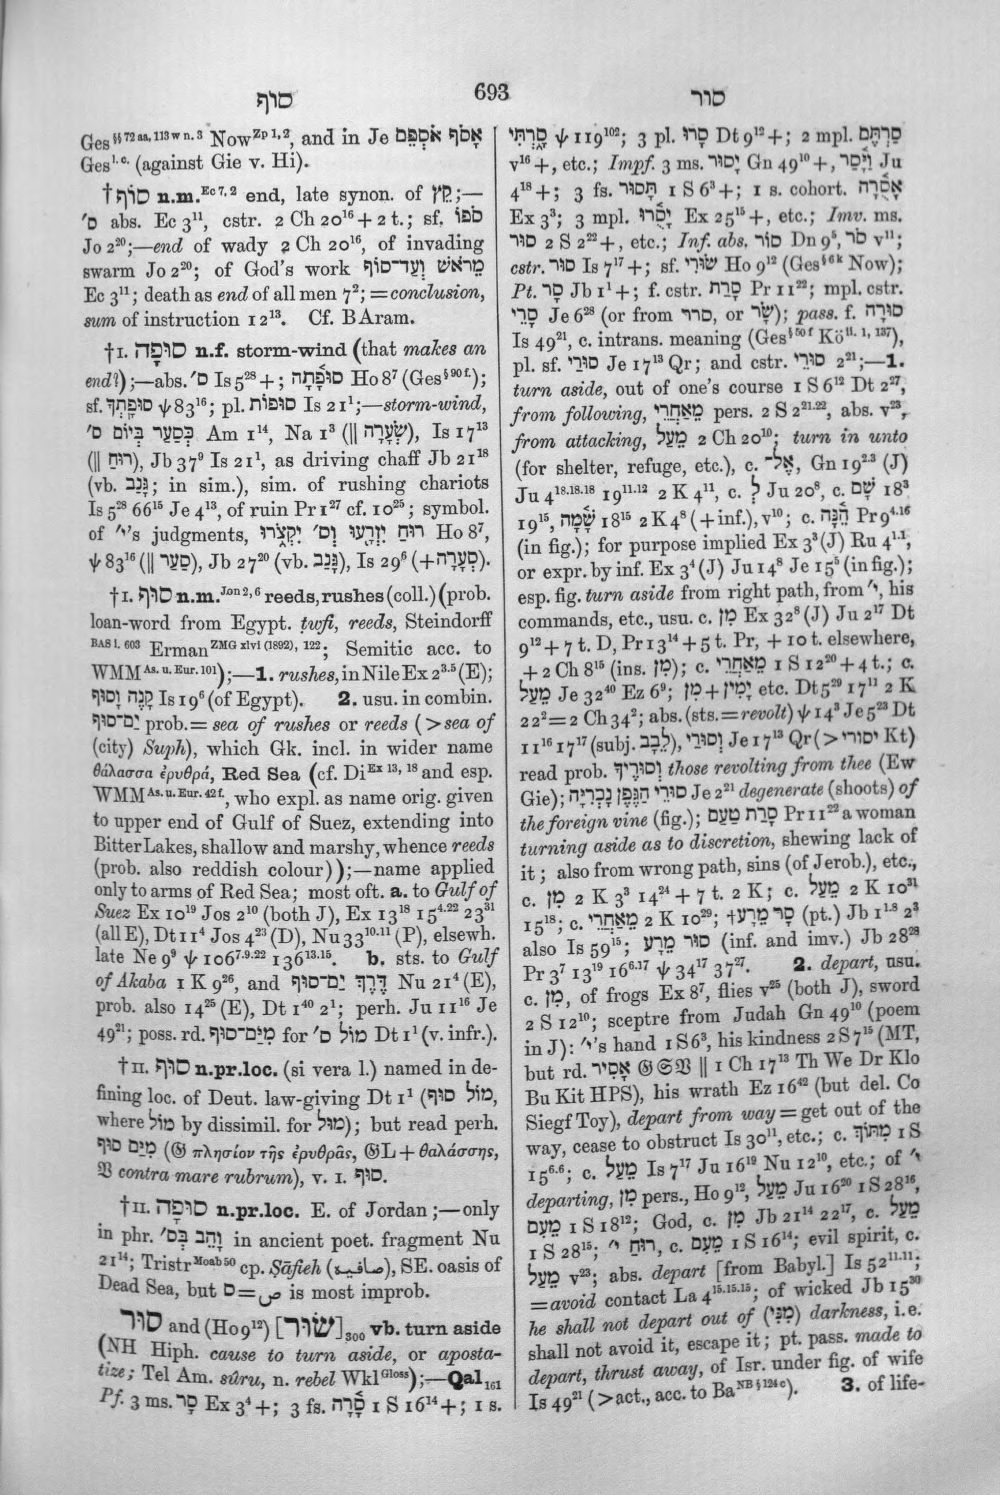 סוף
693
סור
Ges §§ 72 aa, 113 w n. 3 Now Zp 1, 2, and in Je אָסֹף אֲסִפֵם
Ges l. c. (against Gie v. Hi).
† סוֹף n.m. Ec 7, 2 end, late synon. of קֵץ;—
ס׳ abs. Ec 3¹¹, cstr. 2 Ch 20¹⁶ + 2 t.; sf. סֹפוֹ
Jo 2²⁰;—end of wady 2 Ch 20¹⁶, of invading
swarm Jo 2²⁰; of God's work מֵרֹאשׁ וְעַד־סוֹף
Ec 3¹¹; death as end of all men 7²; = conclusion,
sum of instruction 12¹³. Cf. B Aram.
† I. סוּפָה n.f. storm-wind (that makes an
end?);—abs. ס׳ Is 5²⁸ +; סוּפָ֫תָה Ho 8⁷ (Ges § 90 f.);
sf. סוּפָתְךָ ψ 83¹⁶; pl. סוּפוֹת Is 21¹;—storm-wind,
בְּסַעַר בְּיוֹם ס׳ Am 1¹⁴, Na 1³ (|| שְׂעָרָה), Is 17¹³
(|| רוּחַ), Jb 37⁹ Is 21¹, as driving chaff Jb 21¹⁸
(vb. גָּנַב; in sim.), sim. of rushing chariots
Is 5²⁸ 66¹⁵ Je 4¹³, of ruin Pr 1²⁷ cf. 10²⁵; symbol.
of י׳'s judgments, רוּחַ יִזְרָעוּ וְס׳ יִקְצֹרוּ Ho 8⁷,
ψ 83¹⁶ (|| סַעַר), Jb 27²⁰ (vb. גָּנַב), Is 29⁶ (+ סְעָרָה).
† I. סוּף n.m. Jon 2, 6 reeds, rushes (coll.) (prob.
loan-word from Egypt. ṭwfi, reeds, Steindorff
BAS I. 603 Erman ZMG xlvi (1892), 122; Semitic acc. to
WMM As. u. Eur. 101);—1. rushes, in Nile Ex 2³·⁵ (E);
קָנֶה וָסוּף Is 19⁶ (of Egypt). 2. usu. in combin.
יַם־סוּף prob. = sea of rushes or reeds (> sea of
(city) Suph), which Gk. incl. in wider name
θάλασσα ἐρυθρά, Red Sea (cf. Di Ex 13, 18 and esp.
WMM As. u. Eur. 42 f., who expl. as name orig. given
to upper end of Gulf of Suez, extending into
Bitter Lakes, shallow and marshy, whence reeds
(prob. also reddish colour));—name applied
only to arms of Red Sea; most oft. a. to Gulf of
Suez Ex 10¹⁹ Jos 2¹⁰ (both J), Ex 13¹⁸ 15⁴·²² 23³¹
(all E), Dt 11⁴ Jos 4²³ (D), Nu 33¹⁰·¹¹ (P), elsewh.
late Ne 9⁹ ψ 106⁷·⁹·²² 136¹³·¹⁵. b. sts. to Gulf
of Akaba 1 K 9²⁶, and דֶּרֶךְ יַם־סוּף Nu 21⁴ (E),
prob. also 14²⁵ (E), Dt 1⁴⁰ 2¹; perh. Ju 11¹⁶ Je
49²¹; poss. rd. מִיַּם־סוּף for מוֹל ס׳ Dt 1¹ (v. infr.).
† II. סוּף n.pr.loc. (si vera l.) named in de-
fining loc. of Deut. law-giving Dt 1¹ (מוֹל סוּף,
where מוֹל by dissimil. for מוּל); but read perh.
מִיַּם סוּף (𝔊 πλησίον τῆς ἐρυθρᾶς, 𝔊L + θαλάσσης,
𝔙 contra mare rubrum), v. I. סוּף.
† II. סוּפָה n.pr.loc. E. of Jordan;—only
in phr. וָהֵב בְּס׳ in ancient poet. fragment Nu
21¹⁴; Tristr Moab 50 cp. Ṣāfieh (صافية), SE. oasis of
Dead Sea, but ס=ص is most improb.
סוּר and (Ho 9¹²) [שׂוּר] 300 vb. turn aside
(NH Hiph. cause to turn aside, or aposta-
tize; Tel Am. sûru, n. rebel Wkl Gloss);—Qal 161
Pf. 3 ms. סָר Ex 3⁴ +; 3 fs. סָ֫רָה 1 S 16¹⁴ +; 1 s.
סַ֫רְתִּי ψ 119¹⁰²; 3 pl. סָרוּ Dt 9¹² +; 2 mpl. סַרְתֶּם
v¹⁶ +, etc.; Impf. 3 ms. יָסוּר Gn 49¹⁰ +, וַיָּ֫סַר Ju
4¹⁸ +; 3 fs. תָּסוּר 1 S 6³ +; 1 s. cohort. אָסֻרָה
Ex 3³; 3 mpl. יָסֻ֫רוּ Ex 25¹⁵ +, etc.; Imv. ms.
סוּר 2 S 2²² +, etc.; Inf. abs. סוֹר Dn 9⁵, סֹר v¹¹;
cstr. סוּר Is 7¹⁷ +; sf. שׂוּרִי Ho 9¹² (Ges § 6 k Now);
Pt. סָר Jb 1¹ +; f. cstr. סָרַת Pr 11²²; mpl. cstr.
סָרֵי Je 6²⁸ (or from סרר, or שָׂ֫רֵי); pass. f. סוּרָה
Is 49²¹, c. intrans. meaning (Ges § 50 f Kö II. 1, 137),
pl. sf. סוּרַי Je 17¹³ Qr; and cstr. סוּרֵי 2²¹;—1.
turn aside, out of one's course 1 S 6¹² Dt 2²⁷,
from following, מֵאַחֲרֵי pers. 2 S 2²¹·²², abs. v²³,
from attacking, מֵעַל 2 Ch 20¹⁰; turn in unto
(for shelter, refuge, etc.), c. אֶל־, Gn 19²·³ (J)
Ju 4¹⁸·¹⁸·¹⁸ 19¹¹·¹² 2 K 4¹¹, c. לְ Ju 20⁸, c. שָׁם 18³
19¹⁵, שָׁ֫מָּה 18¹⁵ 2 K 4⁸ (+ inf.), v¹⁰; c. הֵ֫נָּה Pr 9⁴·¹⁶
(in fig.); for purpose implied Ex 3³ (J) Ru 4¹·¹,
or expr. by inf. Ex 3⁴ (J) Ju 14⁸ Je 15⁵ (in fig.);
esp. fig. turn aside from right path, from י׳, his
commands, etc., usu. c. מִן Ex 32⁸ (J) Ju 2¹⁷ Dt
9¹² + 7 t. D, Pr 13¹⁴ + 5 t. Pr, + 10 t. elsewhere,
+ 2 Ch 8¹⁵ (ins. מִן); c. מֵאַחֲרֵי 1 S 12²⁰ + 4 t.; c.
מֵעַל Je 32⁴⁰ Ez 6⁹; מִן + יָמִין etc. Dt 5²⁹ 17¹¹ 2 K
22² = 2 Ch 34²; abs. (sts. = revolt) ψ 14³ Je 5²³ Dt
11¹⁶ 17¹⁷ (subj. לֵבָב), וְסוּרַי Je 17¹³ Qr (> יסורי Kt)
read prob. וְסוּרֶיךָ those revolting from thee (Ew
Gie); סוּרֵי הַגֶּפֶן נָכְרִיָּה Je 2²¹ degenerate (shoots) of
the foreign vine (fig.); סָרַת טַעַם Pr 11²² a woman
turning aside as to discretion, shewing lack of
it; also from wrong path, sins (of Jerob.), etc.,
c. מִן 2 K 3³ 14²⁴ + 7 t. 2 K; c. מֵעַל 2 K 10³¹
15¹⁸; c. מֵאַחֲרֵי 2 K 10²⁹; † סָר מֵרָע (pt.) Jb 1¹·⁸ 2³
also Is 59¹⁵; סוּר מֵרָע (inf. and imv.) Jb 28²⁸
Pr 3⁷ 13¹⁹ 16⁶·¹⁷ ψ 34¹⁷ 37²⁷. 2. depart, usu.
c. מִן, of frogs Ex 8⁷, flies v²⁵ (both J), sword
2 S 12¹⁰; sceptre from Judah Gn 49¹⁰ (poem
in J): י׳'s hand 1 S 6³, his kindness 2 S 7¹⁵ (MT,
but rd. אָסִיר 𝔊 𝔖 𝔙 || 1 Ch 17¹³ Th We Dr Klo
Bu Kit HPS), his wrath Ez 16⁴² (but del. Co
Siegf Toy), depart from way = get out of the
way, cease to obstruct Is 30¹¹, etc.; c. מִתּוֹךְ 1 S
15⁶·⁶; c. מֵעַל Is 7¹⁷ Ju 16¹⁹ Nu 12¹⁰, etc.; of י׳
departing, מִן pers., Ho 9¹², מֵעַל Ju 16²⁰ 1 S 28¹⁶,
מֵעִם 1 S 18¹²; God, c. מִן Jb 21¹⁴ 22¹⁷, c. מֵעַל
1 S 28¹⁵; רוּחַ י׳, c. מֵעִם 1 S 16¹⁴; evil spirit, c.
מֵעַל v²³; abs. depart [from Babyl.] Is 52¹¹·¹¹;
= avoid contact La 4¹⁵·¹⁵·¹⁵; of wicked Jb 15³⁰
he shall not depart out of (מִנִּי) darkness, i.e.
shall not avoid it, escape it; pt. pass. made to
depart, thrust away, of Isr. under fig. of wife
Is 49²¹ (> act., acc. to Ba NB § 124 c). 3. of life-